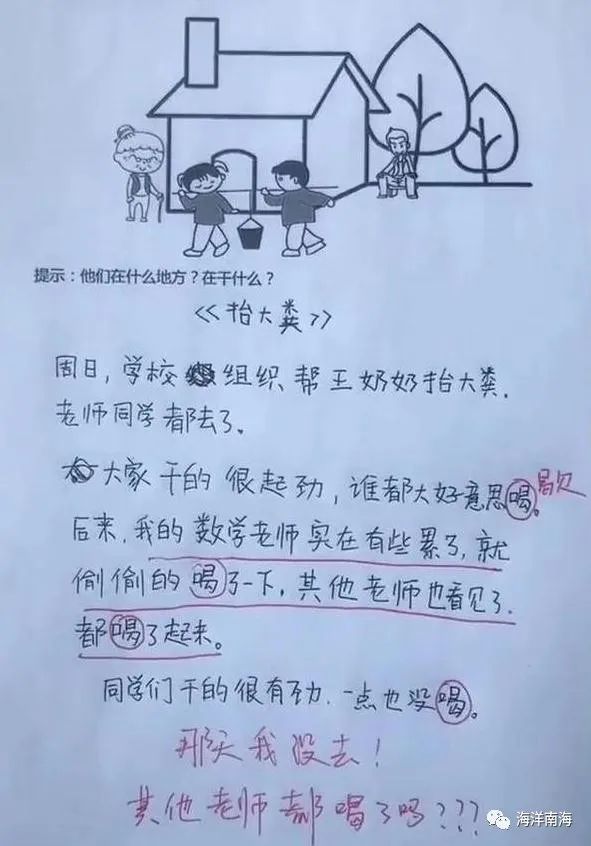 提示：他们在什么地方？在干什么？
<<抬大粪>>
周日，学校组织帮王奶奶抬大粪．
老师同学都去了．
大家干的很起劲，谁都大好意思喝。歇
后来，我的数学老师实在有些累了，就
偷偷的喝了一下，其他老师也看见了．
都喝了起来。
同学们干的很有劲．一点也没喝。
那天我没去！
其他老师都喝了吗？？？
海洋南海